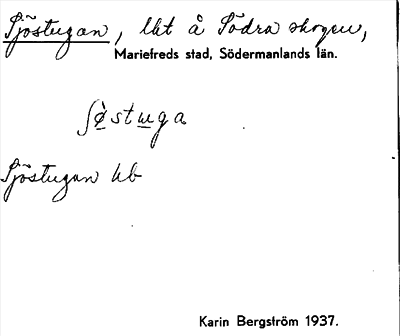 Sjöstugan, lht å Södra skogen,
Mariefreds stad, Södermanlands län.
ʃø̀stuga
Sjöstugan hb
Karin Bergström 1937.